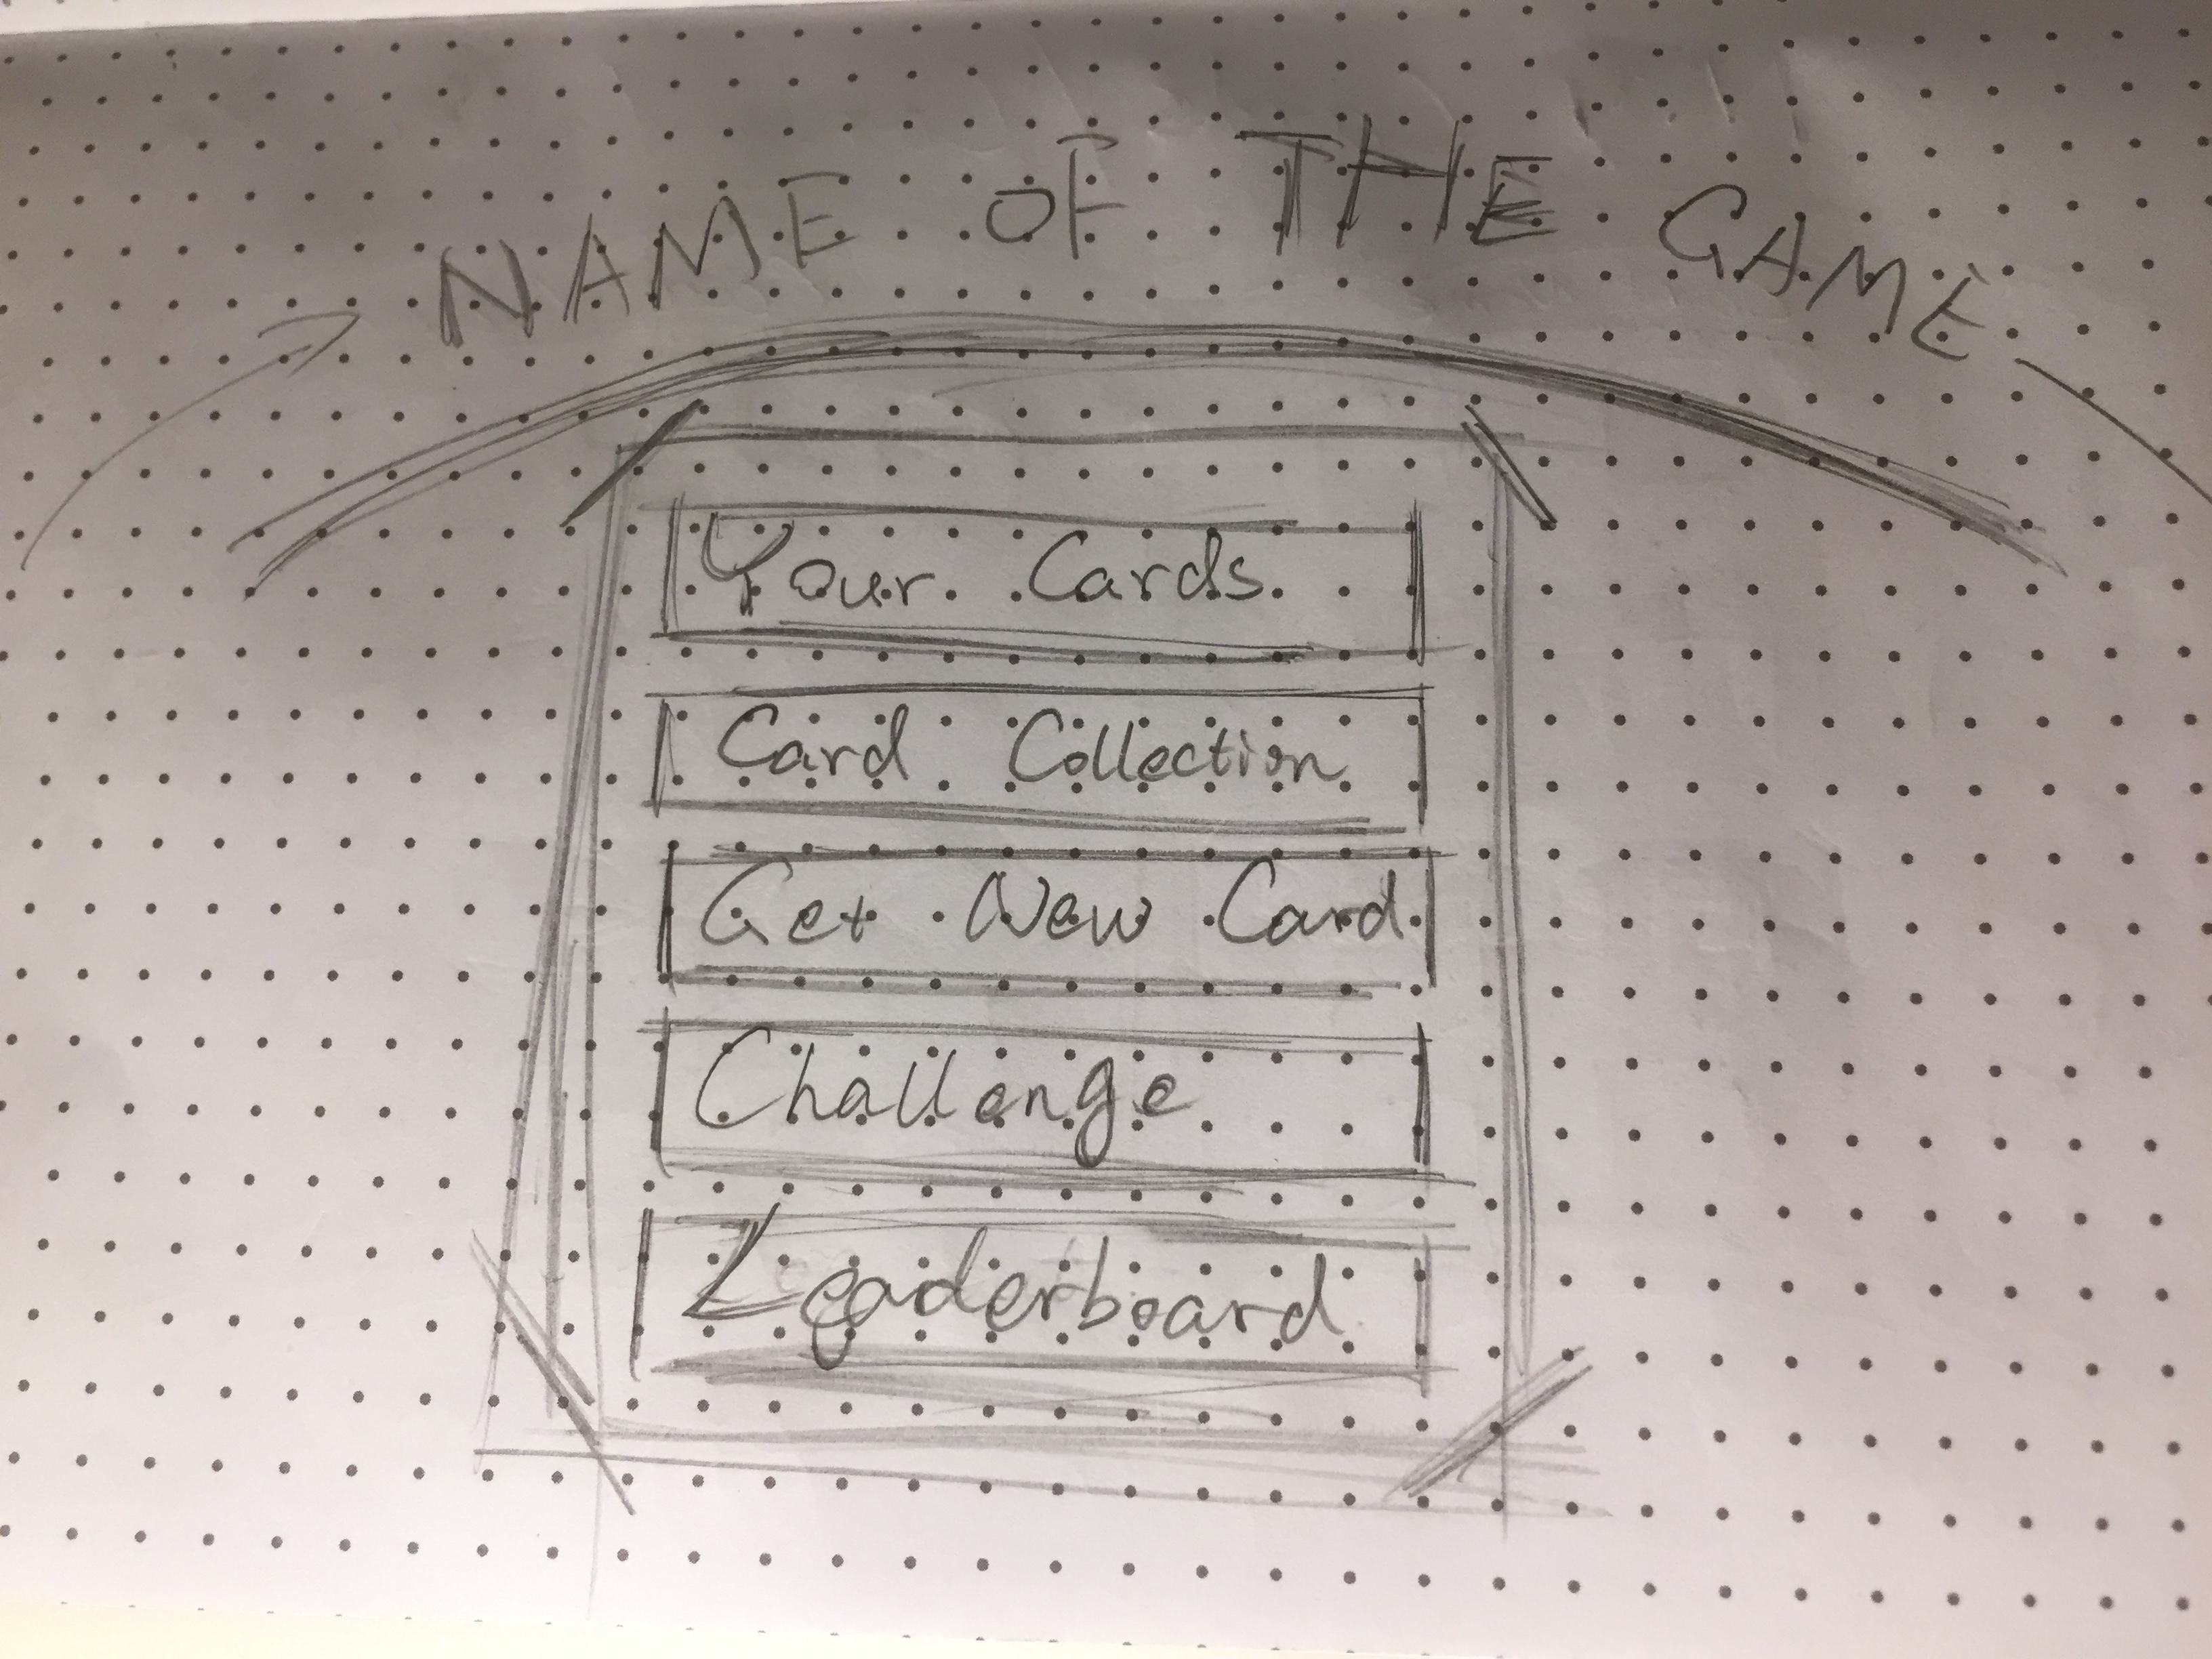 NAME OF THE GAME
Your Cards
Card Collection
Get New Card
Challenge
Leaderboard